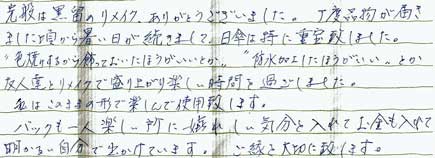 先般は黒留のリメイク、ありがとうございました。丁度品物が届き
ました頃から暑い日が続きまして、日傘は特に重宝致しました。
"色焼けするから飾っておいたほうがいいとか、" "防水加工したほうがいい"とか
友人達とリメイクで盛り上がり楽しい時間を過ごしました。
私はこのままの形で楽しんで使用致します。
バックも一人楽しい所に嬉しい気分を入れてお金も入れて
明かるい自分で出かけています。ご縁を大切に致します。